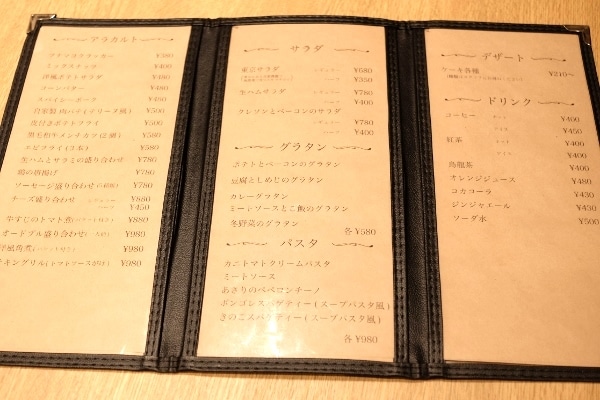 アラカルト
¥580
ミックスナッツ ¥400
洋風ポテトサラダ ¥490
コーンバター ¥480
スパイシーポーク ¥490
自家製 肉パテ(テリーヌ風) ¥500
皮付きポテトフライ ¥500
黒毛和牛メンチカツ ¥580
エビフライ(3本) ¥580
生ハムとサラミの盛り合わせ ¥780
鶏の唐揚げ ¥780
ソーセージ盛り合わせ ¥780
チーズ盛り合わせ レギュラー ¥880
ハーフ ¥450
牛すじのトマト煮 ¥880
オードブル盛り合わせ ¥980
洋風角煮 ¥980
チキングリル(トマトソースがけ) ¥980
サラダ
東京サラダ レギュラー ¥680
ハーフ ¥350
生ハムサラダ レギュラー ¥780
ハーフ ¥400
クレソンとベーコンのサラダ
レギュラー ¥780
ハーフ ¥400
グラタン
ポテトとベーコンのグラタン
豆腐としめじのグラタン
カレーグラタン
ミートソースとご飯のグラタン
冬野菜のグラタン
各 ¥580
パスタ
カニトマトクリームパスタ
ミートソース
あさりのペペロンチーノ
ボンゴレスパゲティー(スープパスタ風)
きのこスパゲティー(スープパスタ風)
各 ¥980
デザート
ケーキ各種 ¥210〜
ドリンク
コーヒー ホット ¥400
アイス ¥450
紅茶 ホット ¥400
アイス ¥400
烏龍茶 ¥400
オレンジジュース ¥480
コカコーラ ¥430
ジンジャエール ¥430
ソーダ水 ¥500